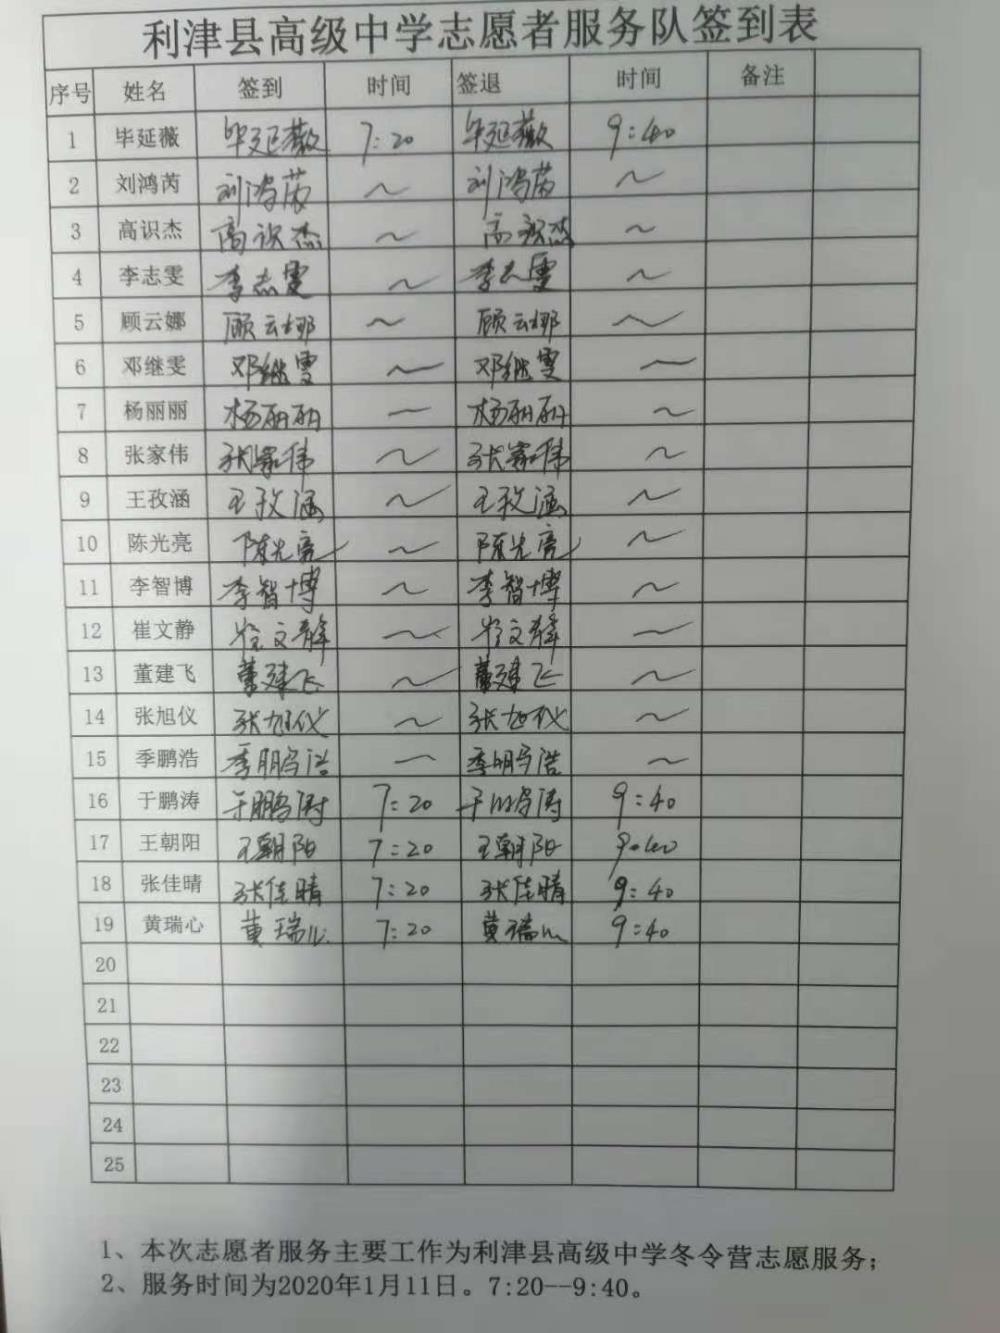 利津县高级中学志愿者服务队签到表
序号 姓名 签到 时间 签退 时间 备注
1 毕延薇 毕延薇 7:20 毕延薇 9:40
2 刘鸿芮 刘鸿芮 ～ 刘鸿芮 ～
3 高识杰 高识杰 ～ 高识杰 ～
4 李志雯 李志雯 ～ 李志雯 ～
5 顾云娜 顾云娜 ～ 顾云娜 ～
6 邓继雯 邓继雯 ～ 邓继雯 ～
7 杨丽丽 杨丽丽 ～ 杨丽丽 ～
8 张家伟 张家伟 ～ 张家伟 ～
9 王孜涵 王孜涵 ～ 王孜涵 ～
10 陈光亮 陈光亮 ～ 陈光亮 ～
11 李智博 李智博 ～ 李智博 ～
12 崔文静 崔文静 ～ 崔文静 ～
13 董建飞 董建飞 ～ 董建飞 ～
14 张旭仪 张旭仪 ～ 张旭仪 ～
15 季鹏浩 季鹏浩 ～ 季鹏浩 ～
16 于鹏涛 于鹏涛 7:20 于鹏涛 9:40
17 王朝阳 王朝阳 7:20 王朝阳 9:40
18 张佳晴 张佳晴 7:20 张佳晴 9:40
19 黄瑞心 黄瑞心 7:20 黄瑞心 9:40
20
21
22
23
24
25
1、本次志愿者服务主要工作为利津县高级中学冬令营志愿服务；
2、服务时间为2020年1月11日。7:20--9:40。